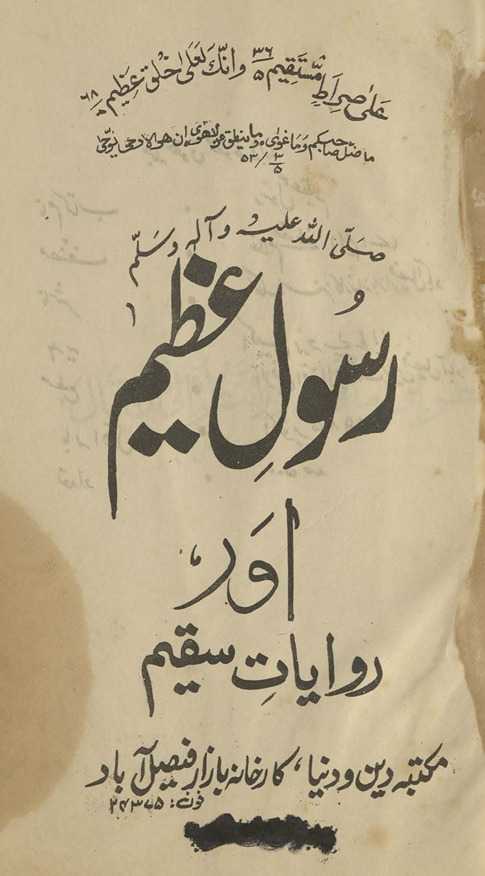 عَلیٰ صِراطٍ مُّسْتَقِیم ۳۶/۵ وَاِنَّکَ لَعَلیٰ خُلُقٍ عَظِیْم ۶۸
ماضلّ صاحبکم وماغویٰ، وماینطق عن الھویٰ ان ھو الا وحی یوحیٰ
۵۳/۳/۵
صَلّی اللّٰہ علیہ وآلہٖ وسَلّم
رسُولِ عظیم
اَور
روایاتِ سقیم
مکتبہ دین و دنیا، کارخانہ بازار فیصل آباد
فون: ۲۴۳۷۵